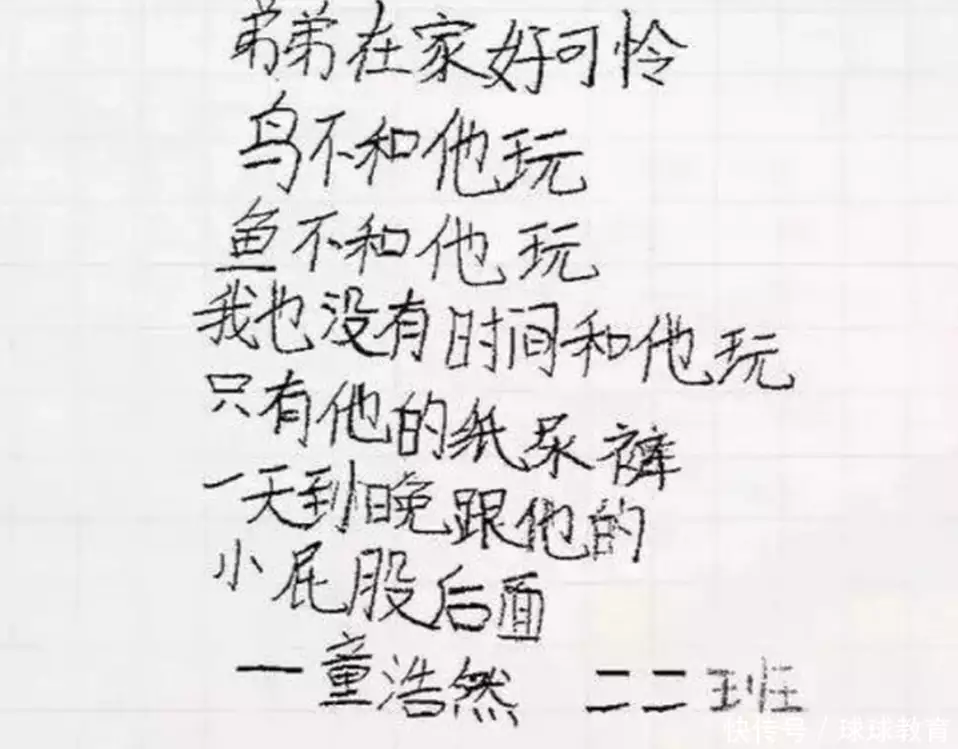 弟弟在家好可怜
鸟不和他玩
鱼不和他玩
我也没有时间和他玩
只有他的纸尿裤
一天到晚跟他的
小屁股后面
—童浩然 二二班
快传号/球球教育